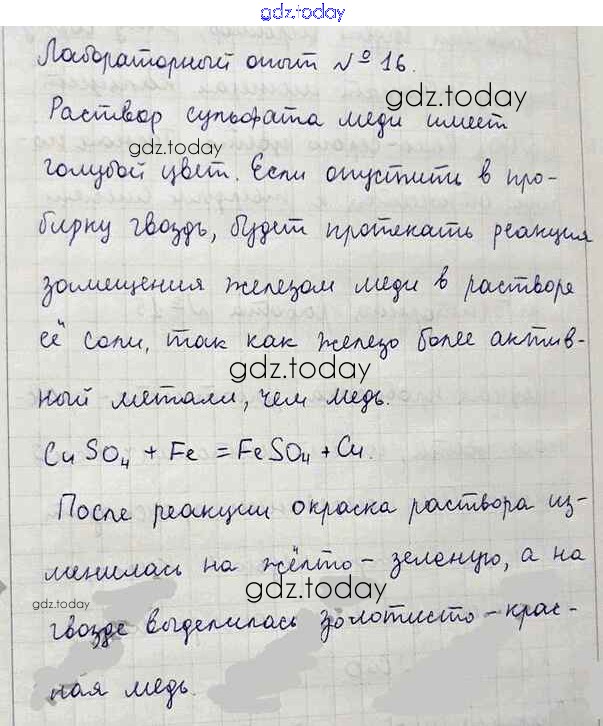 gdz.today
Лабораторный опыт № 16.
gdz.today
Раствор сульфата меди имеет
gdz.today
голубой цвет. Если опустить в про-
бирку гвоздь, будет протекать реакция
замещения железом меди в растворе
её соли, так как железо более актив-
gdz.today
ный металл, чем медь.
CuSO4 + Fe = FeSO4 + Cu.
После реакции окраска раствора из-
менилась на жёлто-зеленую, а на
gdz.today
gdz.today
гвозде выделилась золотисто-крас-
ная медь.